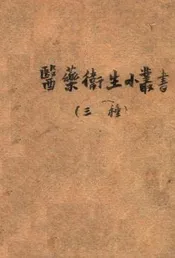 醫藥衛生小叢書
（三種）